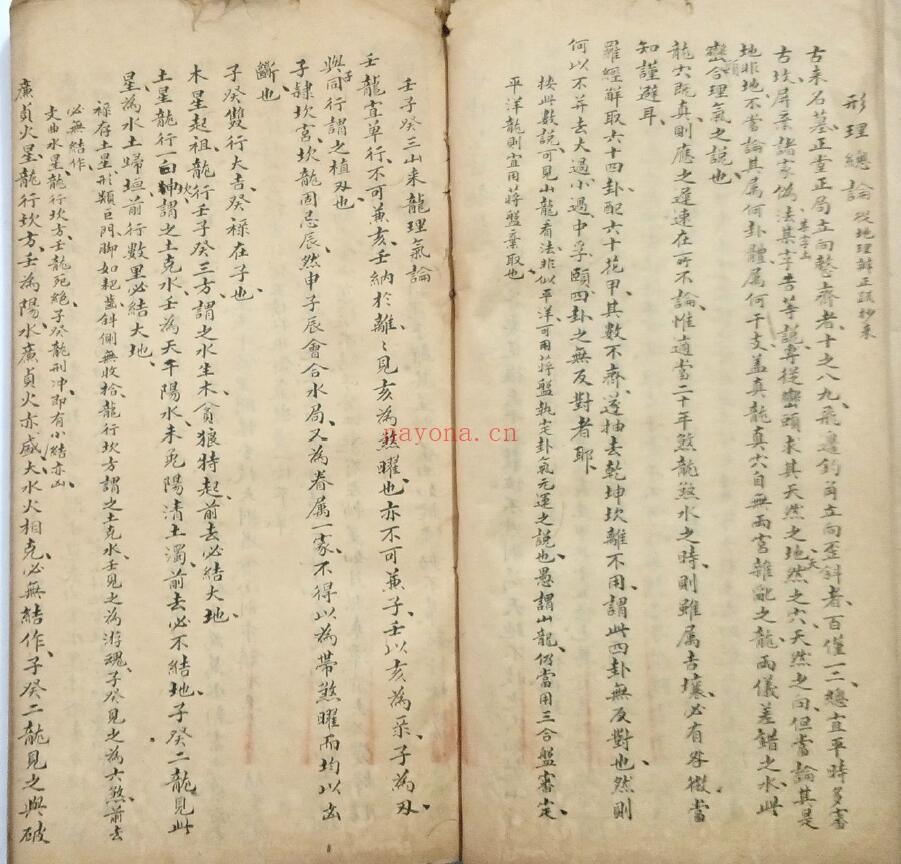 形理總論 從地理辨正疏抄来
古来名墓正堂正局立向整齊者十之八九飛邊釣角立向歪斜者百僅一二總宜平時多審
古坟屏棄諸家偽法其字吉等說專從巒頭求其天然之地天然之穴天然之向但當論其是
地非地不當論其属何卦體属何干支蓋真龍真穴自無兩宫雜亂之龍兩儀差錯之水此
巒頭合理氣之說也
龍穴既真則應之遲速在所不論惟適當二十年煞龍煞水之時則雖属吉壤必有咎徵當
知謹避耳
羅經解取六十四卦配六十花甲其數不齊遂抽去乾坤坎離不用謂此四卦無反對也然則
何以不并去大過小過中孚頤四卦之無反對者耶
按此数說可見山龍看法非似平洋可用蔣盤執定卦氣元運之說也愚謂山龍仍當用三合盤審定
平洋龍則宜用蔣盤棄取也
壬子癸三山来龍理氣論
壬龍宜单行不可兼亥壬納於離離見亥為煞曜也亦不可兼子壬以亥為禄子為刃
與子同行謂之植刃也
子隷坎宫坎龍固忌辰然申子辰會合水局又為眷属一家不得以為帶煞曜而均以凶
斷也
子癸雙行大吉癸禄在子也
木星起祖龍行壬子癸三方謂之水生木貪狼特起前去必結大地
土星龍行坎謂之土克水壬為天干陽水未免陽清土濁前去必不結地子癸二龍見此
星為水土歸垣前行数里必結大地
禄存土星形類巨門脚如耙齒斜側無收拾龍行坎方謂之土克水壬見之為游魂子癸見之為六煞前去
必無結作
文曲水星龍行坎方壬龍死絶子癸龍刑冲即有小結亦凶
廉貞火星龍行坎方壬為陽水廉貞火亦盛大水火相克必無結作子癸二龍見之與破
nayona.cn